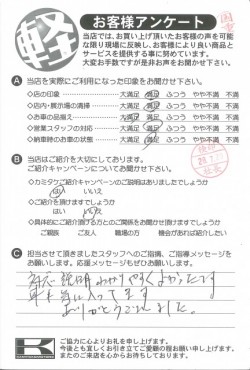 軽
お客様アンケート
当店では、お買い上げ頂いたお客様の声を可能
な限り現場に反映し、お客様により良い商品と
サービスを提供する事に努めています。
大変お手数ですが是非お声をお聞かせ下さい。
A 当店を実際にご利用になった印象をお聞かせ下さい。
◇店の印象 大満足 満足 ふつう やや不満 不満
◇店内・展示場の清掃 大満足 満足 ふつう やや不満 不満
◇お車の品揃え 大満足 満足 ふつう やや不満 不満
◇営業スタッフの対応 大満足 満足 ふつう やや不満 不満
◇納車時のお車の状態 大満足 満足 ふつう やや不満 不満
B 当店はご紹介を大切にしております。
ご紹介キャンペーンについてお聞かせ下さい。
◇カミタケご紹介キャンペーンのご説明はありましたでしょうか
はい いいえ
◇ご紹介を頂けますでしょうか
はい いいえ
◇具体的にご紹介頂ける方とのご関係をお聞かせ頂けますでしょうか
ご親戚 ご友人 職場の方 機会があれば紹介したい
C 担当させて頂きましたスタッフへのご指摘、ご指導メッセージを
お願いします。応援メッセージもぜひお願いします。
対応説明わかりやすくよかったです
車も気に入ってます
ありがとうございました。
K
ご協力に心よりお礼を申し上げます。
今後とも宜しくお引き立てご愛顧の程お願い申し上げます。
またのご来店を心からお待ちしております。